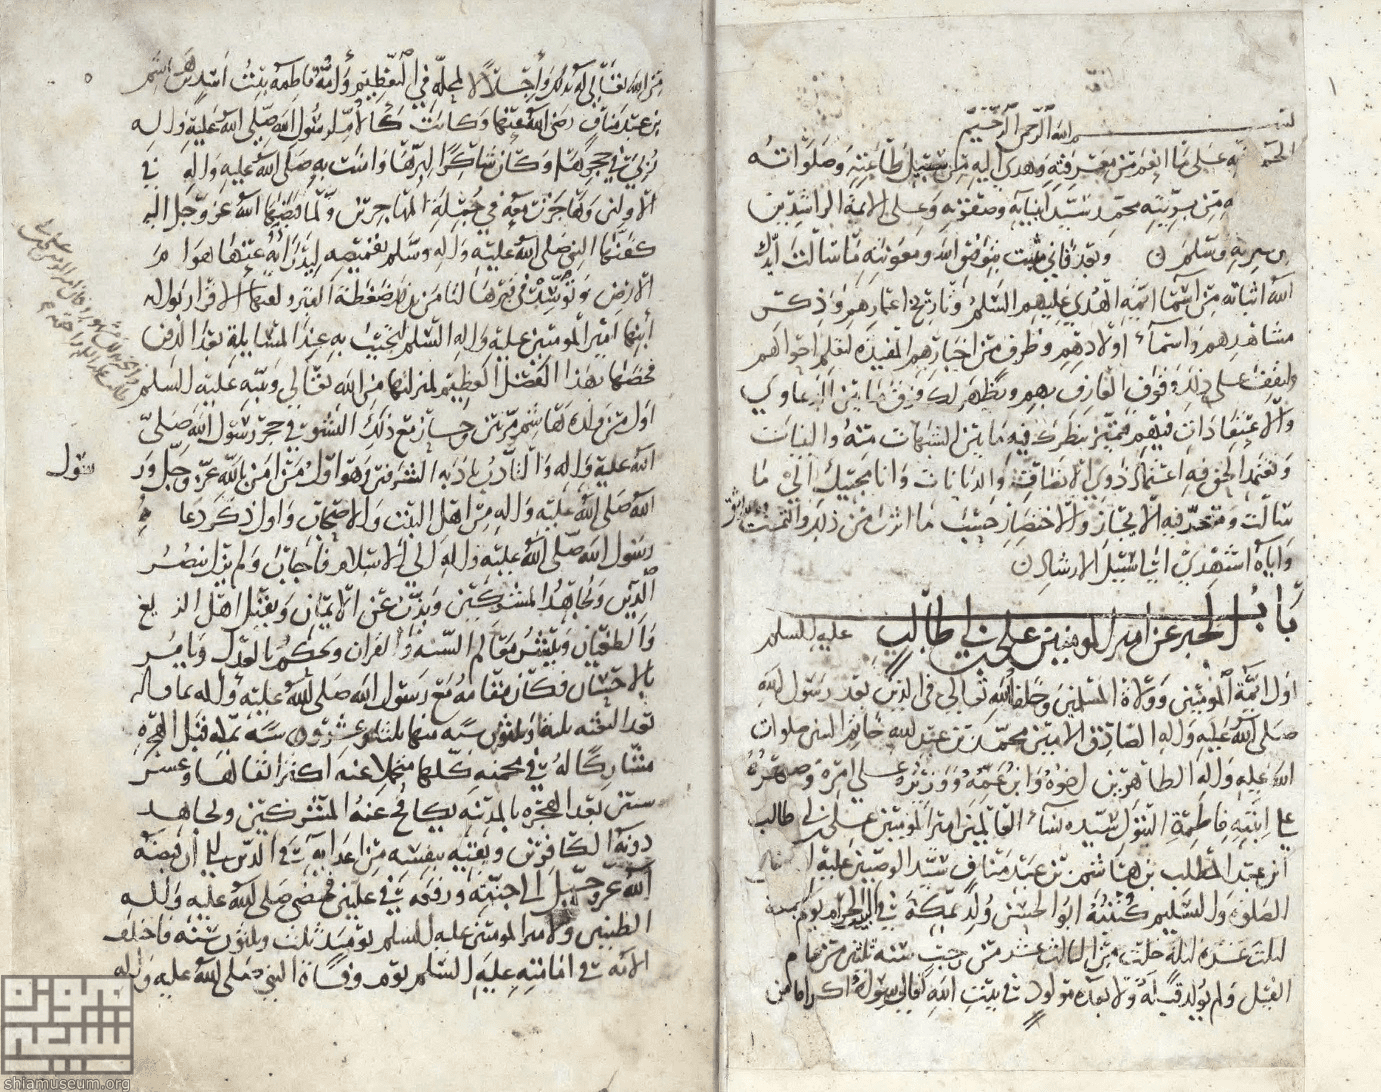 بسم الله الرحمن الرحيم
الحمد لله على ما انعم من معرفته وهدى اليه من سبيل طاعته وصلواته
من بريته محمد سيد انبيائه وصفوته وعلى الائمة الراشدين
وسلم وبعد فاني مثبت بتوفيق الله ومعونته ما سالت ايدك
الله اثباته من اسما ايمة الهدى عليهم السلم وتاريخ اعمارهم وذكر
مشاهدهم واسماء اولادهم وطرف من اخبارهم المفيدة لعلم احوالهم
لتقف على ذلك وقوف العارف بهم ويظهر لك فرق ما بين الدعاوي
والاعتقادات فيهم فتميز بنظرك فيه ما بين الشبهات منه والبينات
وتعتمد الحق فيه اعتماد ذوي الانصاف والديانات وانا مجيبك الى ما
سالت ومتحر فيه الايجاز والاختصار حسب ما اثرت من ذلك والتمست وبالله اثق
واياه استهدي الى سبيل الرشاد
باب الخبر عن امير المومنين علي بن ابي طالب عليه السلم
اول ايمة المومنين وولاة المسلمين وخلفا الله تعالى في الدين بعد رسول الله
صلى الله عليه واله الصادق الامين محمد بن عبد الله خاتم النبيين صلوات
الله عليه واله الطاهرين اخوه وابن عمه ووزيره على امره وصهره
على ابنته فاطمة البتول سيدة نساء العالمين امير المومنين علي بن ابي طالب
ابن عبد المطلب بن هاشم بن عبد مناف سيد الوصيين عليه افضل
الصلوة والتسليم كنيته ابو الحسن ولد بمكة في البيت الحرام يوم الجمعة
لثلث عشرة ليلة خلت من رجب سنة ثلثين من عام
الفيل ولم يولد قبله ولا بعده مولود في بيت الله تعالى سواه اكراما من
من الله تعالى له بذلك واجلالا لمحله في التعظيم وامه فاطمة بنت اسد بن هاشم
بن عبد مناف رضي الله عنها وكانت كالام لرسول الله صلى الله عليه واله
ربي في حجرها وكان شاكرا لبرها وامنت به صلى الله عليه واله في
الاولين وهاجرت معه في جملة المهاجرين ولما قبضها الله عز وجل اليه
كفنها النبي صلى الله عليه واله وسلم بقميصه ليدرا به عنها هوام
الارض وتوسد في قبرها لتامن بذلك ضغطة القبر ولقنها الاقرار بولاية
ابنها امير المومنين عليه واله السلم لتجيب به عند المسايلة بعد الدفن
فخصها بهذا الفضل العظيم لمنزلتها من الله تعالى ونبيه عليه السلم
اول من ولده هاشم مرتين وحاز مع ذلك النشو في حجر رسول الله صلى
الله عليه واله والتادب بادبه الشرفين وهو اول من امن بالله عز وجل ورسول
الله صلى الله عليه واله من اهل البيت والاصحاب واول ذكر دعاه
رسول الله صلى الله عليه واله الى الاسلام فاجاب ولم يزل ينصر
الدين ويجاهد المشركين ويذب عن الايمان ويقتل اهل الزيغ
والطغيان وينشر معالم السنة والقران ويحكم بالعدل ويامر
بالاحسان فكان مقامه مع رسول الله صلى الله عليه واله
بعد البعثة ثلثا وعشرين سنة منها ثلث عشرة سنة بمكة قبل الهجرة
مشاركا له في محنه كلها متحملا عنه اكثر اثقالها وعشر
سنين بعد الهجرة بالمدينة يكافح عنه المشركين ويجاهد
دونه الكافرين ويقيه بنفسه من اعدائه في الدين الى ان قبضه
الله عز وجل الى جنته ورفعه في عليين فمضى صلى الله عليه واله
الطيبين ولامير المومنين عليه السلم يومئذ ثلث وثلثون سنة فاختلفت
الامة في امامته عليه السلم يوم وفاة النبي صلى الله عليه واله
موزه شیعه
shiamuseum.org